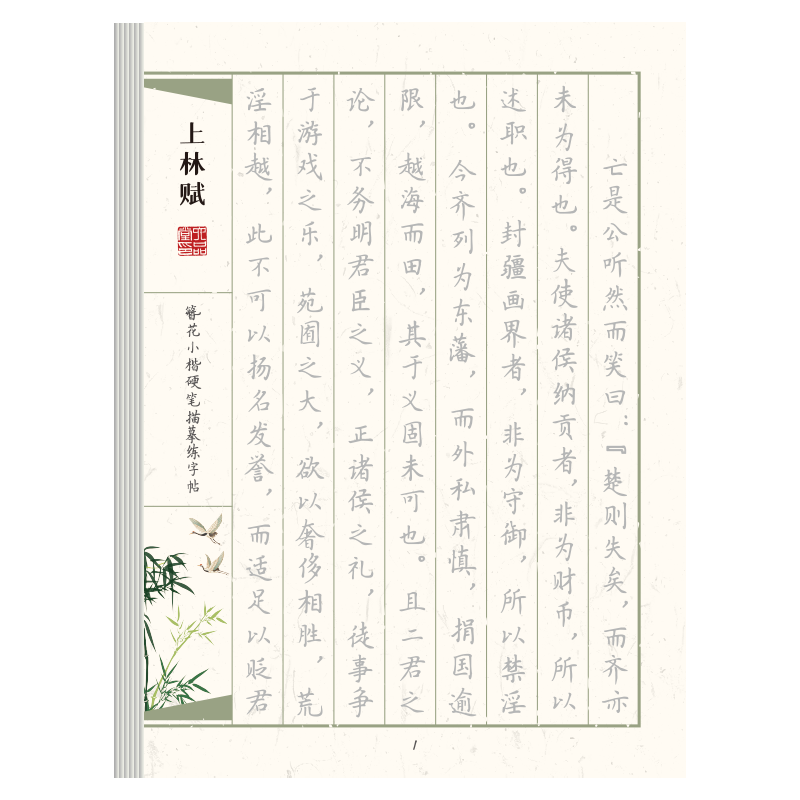 亡是公听然而笑曰：『楚则失矣，而齐亦
未为得也。夫使诸侯纳贡者，非为财币，所以
述职也。封疆画界者，非为守御，所以禁淫
也。今齐列为东藩，而外私肃慎，捐国逾
限，越海而田，其于义固未可也。且二君之
论，不务明君臣之义，正诸侯之礼，徒事争
于游戏之乐，苑囿之大，欲以奢侈相胜，荒
淫相越，此不可以扬名发誉，而适足以贬君
上林赋
簪花小楷硬笔描摹练字帖
1